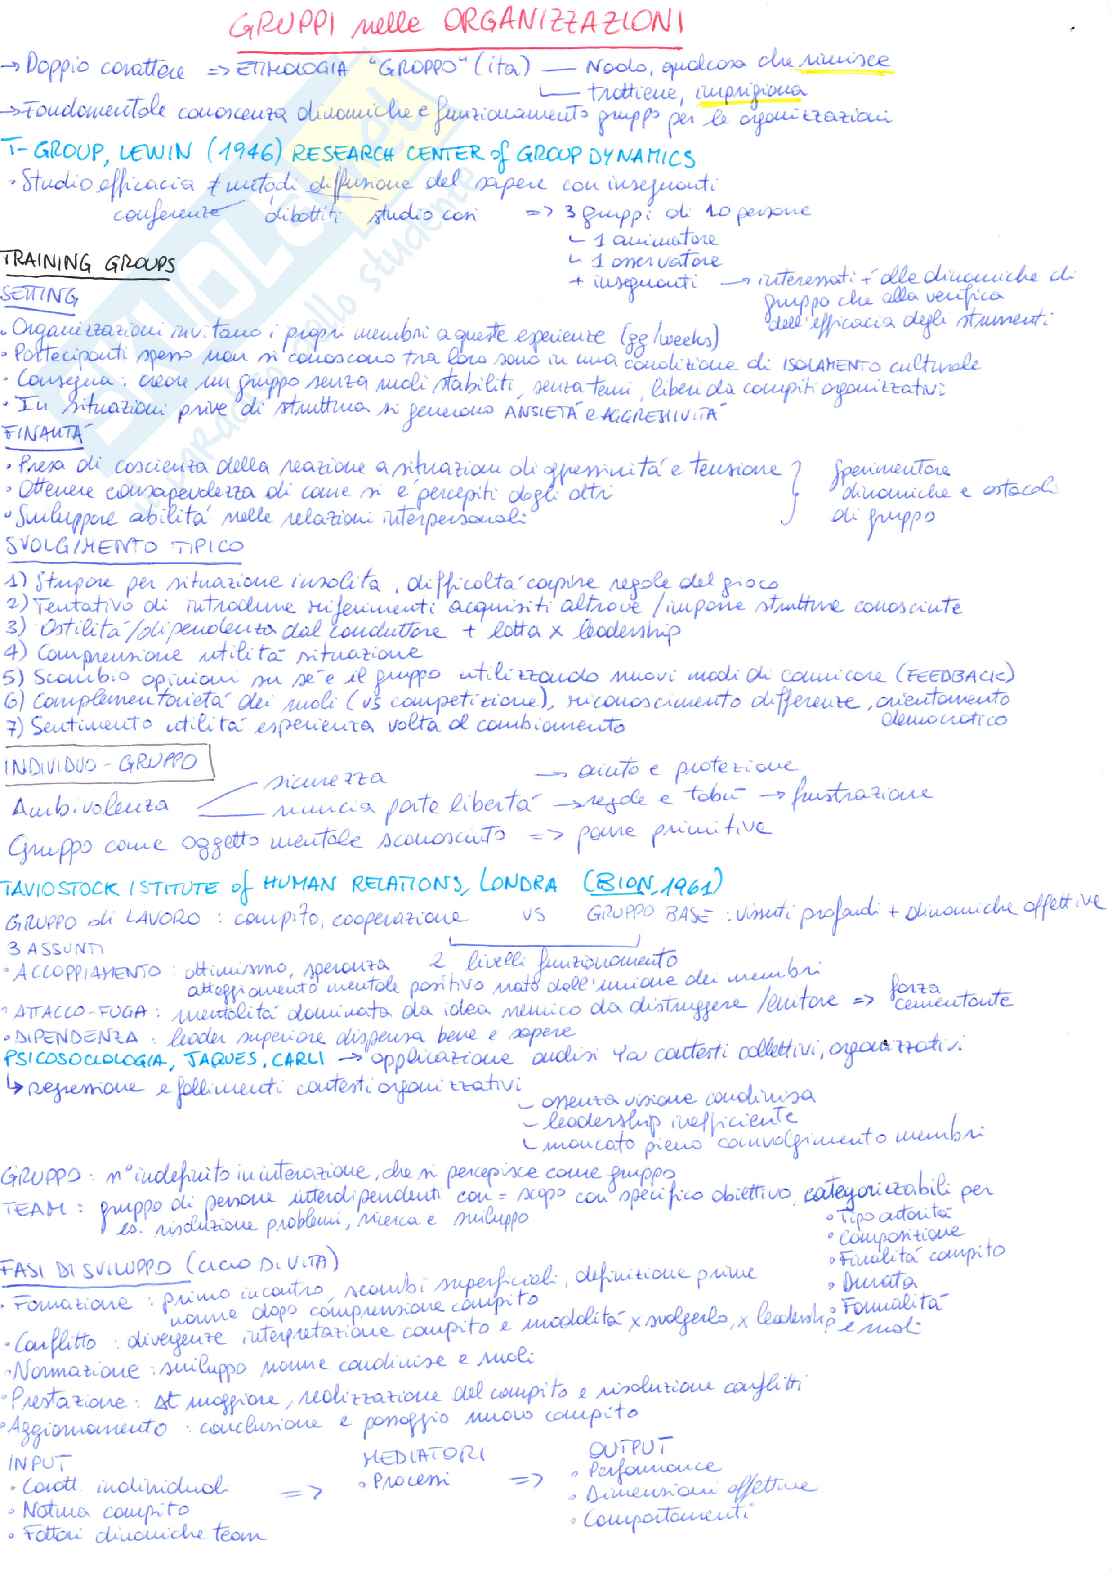 GRUPPI nelle ORGANIZZAZIONI
→ Doppio carattere => ETIMOLOGIA "GROPPO" (ita) — Nodo, qualcosa che riunisce
trattiene, imprigiona
→ Fondamentale conoscenza dinamiche e funzionamento gruppo per le organizzazioni
T-GROUP, LEWIN (1946) RESEARCH CENTER of GROUP DYNAMICS
• Studio efficacia ≠ metodi diffusione del sapere con insegnanti
conferenze dibattiti studio casi => 3 gruppi di 10 persone
1 animatore
1 osservatore
+ insegnanti → interessati + alle dinamiche di
gruppo che alla verifica
dell'efficacia degli strumenti
TRAINING GROUPS
SETTING
• Organizzazioni invitano i propri membri a queste esperienze (gg/weeks)
• Partecipanti spesso non si conoscono tra loro sono in una condizione di ISOLAMENTO culturale
• Consegna: creare un gruppo senza ruoli stabiliti, senza temi, liberi da compiti organizzativi
• In situazioni prive di struttura si generano ANSIETÁ e AGGRESSIVITÁ
FINALITÁ
• Presa di coscienza della reazione a situazioni di aggressività e tensione
• Ottenere consapevolezza di come si è percepiti dagli altri
• Sviluppare abilitá nelle relazioni interpersonali
Sperimentare
dinamiche e ostacoli
di gruppo
SVOLGIMENTO TIPICO
1) Stupore per situazione insolita, difficoltá capire regole del gioco
2) Tentativo di introdurre riferimenti acquisiti altrove / imporre strutture conosciute
3) Ostilitá/dipendenza dal conduttore + lotta x leadership
4) Comprensione utilitá situazione
5) Scambio opinioni su sé e il gruppo utilizzando nuovi modi di comunicare (FEEDBACK)
6) Complementarietá dei ruoli (vs competizione), riconoscimento differenze, orientamento
democratico
7) Sentimento utilitá esperienza volta al cambiamento
INDIVIDUO - GRUPPO
Ambivalenza
sicurezza → aiuto e protezione
rinuncia parte libertá → regole e tabù → frustrazione
Gruppo come oggetto mentale sconosciuto => paure primitive
TAVIOSTOCK ISTITUTE of HUMAN RELATIONS, LONDRA (BION, 1961)
GRUPPO di LAVORO: compito, cooperazione vs GRUPPO BASE: vissuti profondi + dinamiche affettive
3 ASSUNTI
2 livelli funzionamento
• ACCOPPIAMENTO: ottimismo, speranza
atteggiamento mentale positivo nato dall'unione dei membri
• ATTACCO-FUGA: mentalitá dominata da idea nemico da distruggere/evitare => forza
cementante
• DIPENDENZA: leader superiore dispensa bene e sapere
PSICOSOCIOLOGIA, JAQUES, CARLI → applicazione analisi ψ a contesti collettivi, organizzativi
↳ regressione e fallimenti contesti organizzativi
assenza visione condivisa
leadership inefficiente
mancato pieno coinvolgimento membri
GRUPPO: n° indefinito in interazione, che si percepisce come gruppo
TEAM: gruppo di persone interdipendenti con = scopo con specifico obiettivo, categorizzabili per
es. risoluzione problemi, ricerca e sviluppo
• Tipo autoritá
• Composizione
• Finalitá compito
• Durata
• Formalitá
FASI DI SVILUPPO (CICLO DI VITA)
• Formazione: primo incontro, scambi superficiali, definizione prime
norme dopo comprensione compito
• Conflitto: divergenze interpretazione compito e modalitá x svolgerlo, x leadership
e ruoli
• Normazione: sviluppo norme condivise e ruoli
• Prestazione: Δt maggiore, realizzazione del compito e risoluzione conflitti
• Aggiornamento: conclusione e passaggio nuovo compito
INPUT
• Caratt. individuali
• Natura compito
• Fattori dinamiche team
=>
MEDIATORI
• Processi
=>
OUTPUT
• Performance
• Dimensioni affettive
• Comportamenti